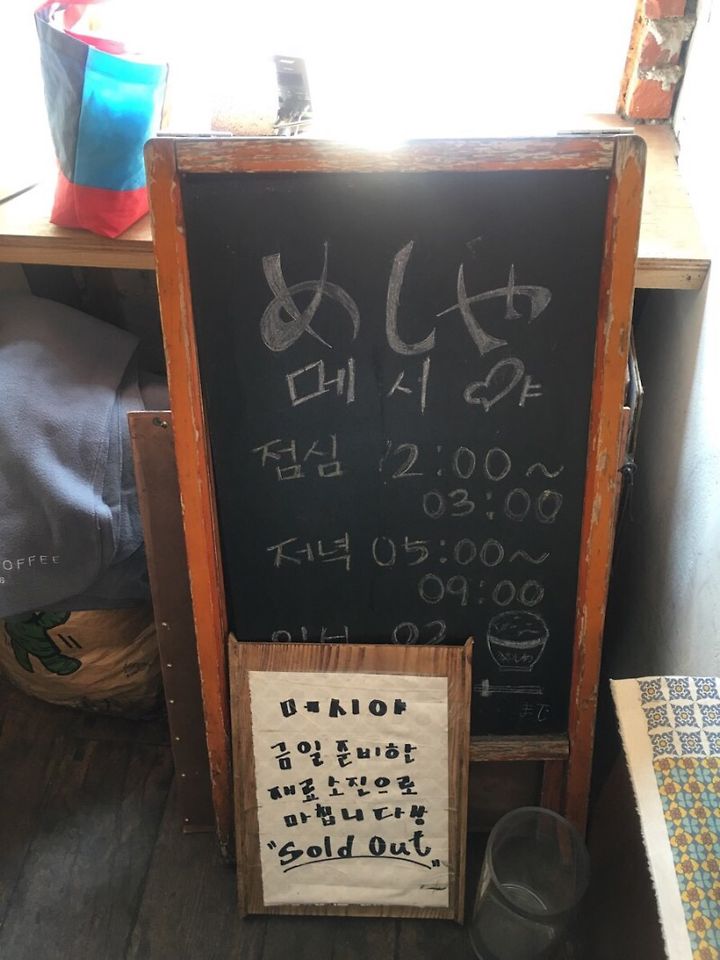 めしや
메시야
점심 12:00~
03:00
저녁 05:00~
09:00
まで
메시야
금일 준비한
재료 소진으로
마칩니다앙
"Sold Out"
OFFEE